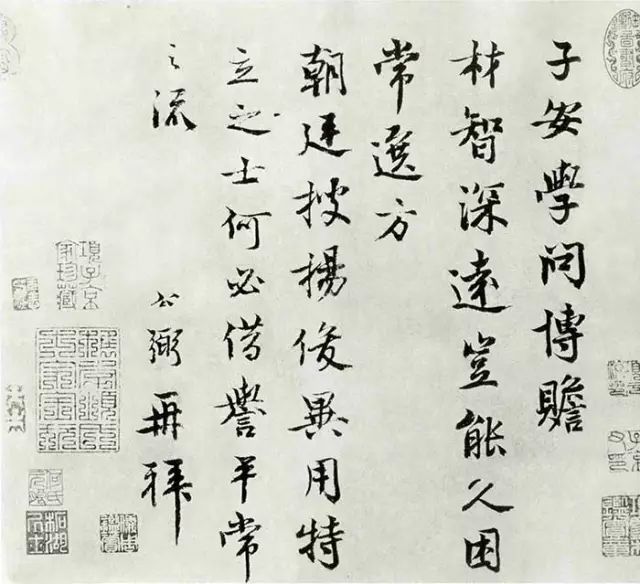 子安學問博贍
材智深達豈能久困
常選方
朝廷搜揚俊異用特
立之士何必借譽平常
之流
公弼再拜
項子京
家珍藏